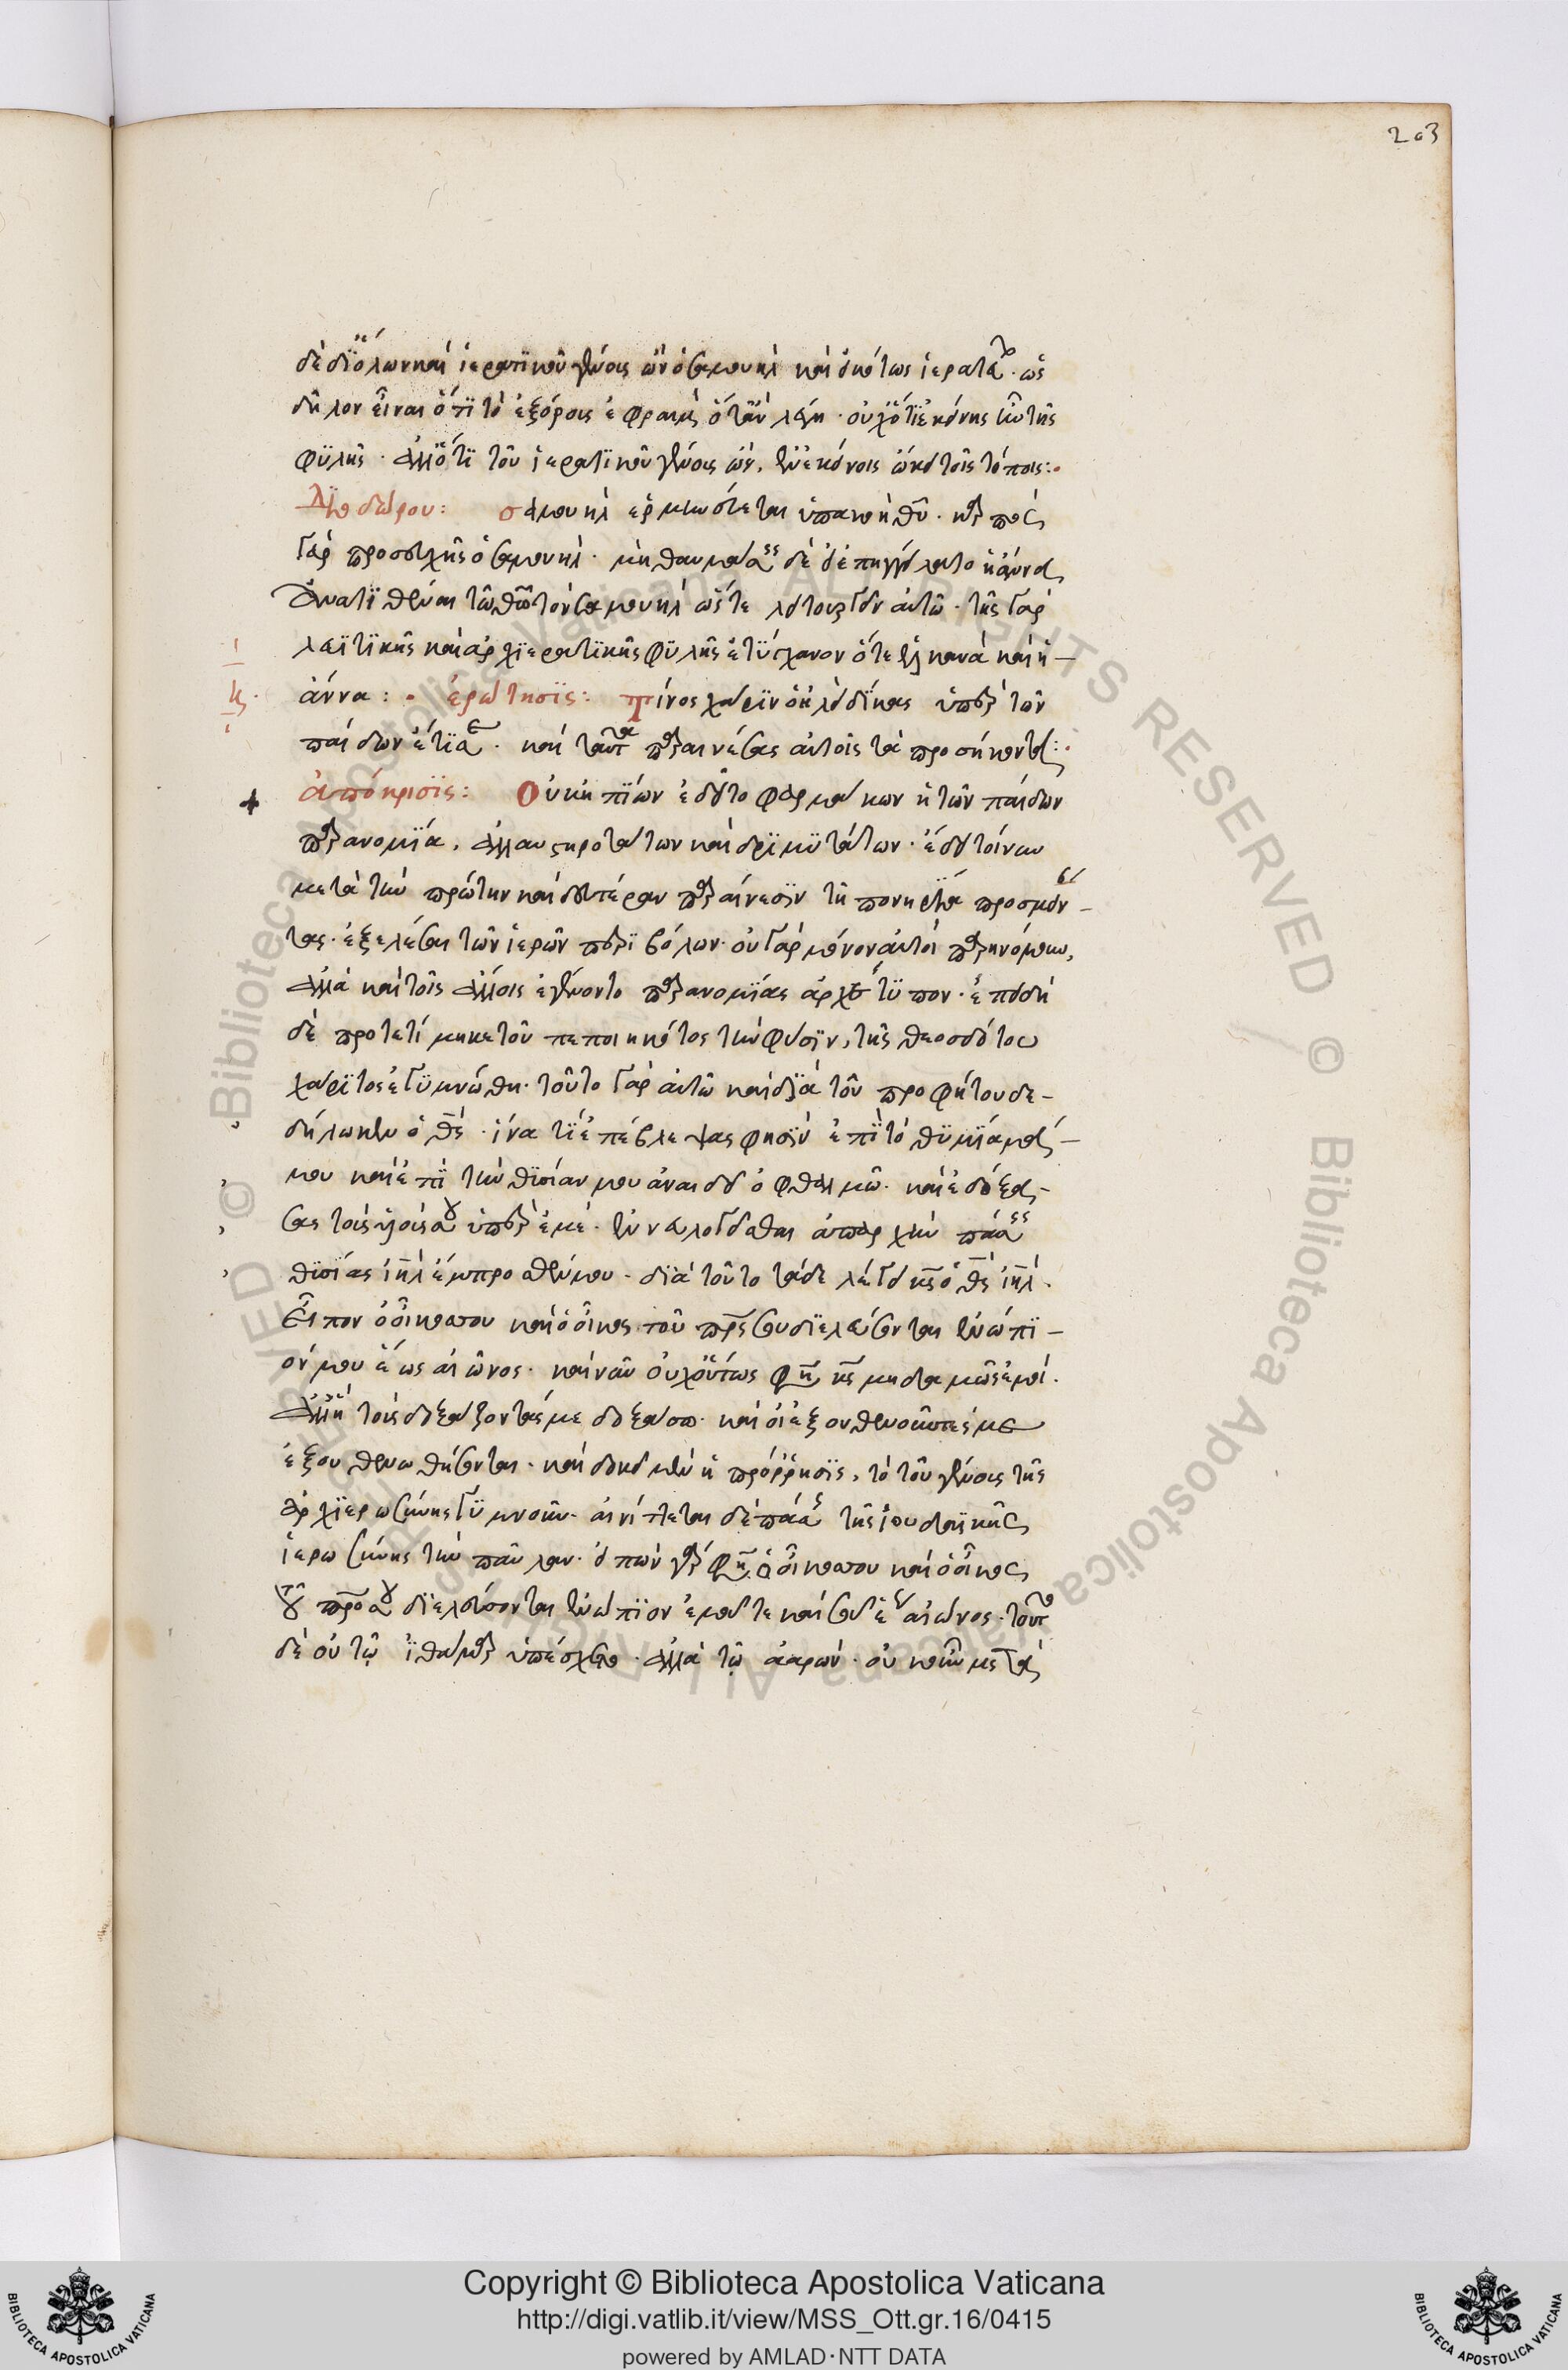 203
δὲ δι' ὅλων καὶ ἱερατικοῦ γένους ὢν ὁ σαμουὴλ καὶ εἰκότως ἱερατεύ· ὡς
δῆλον εἶναι ὅτι τὸ ἐξ ὄρους ἐφραὶμ ὅταν λέγη· οὐχ ὅτι ἐκείνης ἦν τῆς
φυλῆς· ἀλλ' ὅτι τοῦ ἱερατικοῦ γένους ὤν, ἐν ἐκείνοις ὤκει τοῖς τόποις:
Διοδώρου: σαμουὴλ ἑρμηνεύεται ὑπακοὴ θῦ·
γὰρ προσευχῆς ὁ σαμουήλ· μὴ θαυμάσης δὲ εἰ ἐπηγγείλατο ἡ ἄννα
ἀνατιθέναι τῶ θῶ τὸν σαμουὴλ ὥστε λειτουργεῖν αὐτῶ· τῆς γὰρ
λευϊτικῆς καὶ ἀρχιερατικῆς φυλῆς ἐτύγχανον ὅτε ἐλκανὰ καὶ ἡ
ἄννα: ἐρώτησις: Τίνος χάριν ὁ ἠλὶ δίκας ὑπὲρ τῶν
παίδων ἔτισε· καὶ ταῦτα παραινέσας αὐτοῖς τὰ προσήκοντα:
ἀπόκρισις: Οὐκ ἠπίων ἐδεῖτο φαρμάκων ἡ τῶν παίδων
παρανομία, ἀλλ' αὐστηροτάτων καὶ δριμυτάτων· ἔδει τοίνυν
μετὰ τὴν πρώτην καὶ δευτέραν παραίνεσιν τῆ πονηρία προσμείν
τας· ἐξελάσαι τῶν ἱερῶν περιβόλων· οὐ γὰρ μόνον αὐτοὶ παρηνόμουν,
ἀλλὰ καὶ τοῖς ἄλλοις ἐγένοντο παρανομίας ἀρχέτυπον· ἐπειδὴ
δὲ προτετίμηκε τοῦ πεποιηκότος τὴν φύσιν, τῆς θεοσδότου
χάριτος ἐγυμνώθη· τοῦτο γὰρ αὐτῶ καὶ διὰ τοῦ προφήτου δε-
δήλωκεν ὁ θς· ἵνα τί ἐπέβλεψας φησὶν ἐπὶ τὸ θυμίαμά
μου καὶ ἐπὶ τὴν θυσίαν μου ἀναιδεῖ ὀφθαλμῶ· καὶ ἐδόξα-
σας τοὺς υἱούς σου ὑπὲρ ἐμέ· ἐνευλογεῖσθαι ἀπαρχὴν πάσης
θυσίας ιηλ ἔμπροσθέν μου· διὰ τοῦτο τάδε λέγει κς ὁ θς ιηλ·
Εἶπον ὁ οἶκός σου καὶ ὁ οἶκος τοῦ πρς σου διελεύσονται ἐνώπι-
όν μου ἕως αἰῶνος· καὶ νῦν οὐχ οὕτως φη κς μηδαμῶς ἐμοί·
ἀλλ' ἢ τοὺς δοξάζοντάς με δοξάσω· καὶ οἱ ἐξουθενοῦντές με
ἐξουθενωθήσονται· καὶ δοκεῖ μὲν ἡ πρόρρησις, τὸ τοῦ γένους τῆς
ἀρχιερωσύνης γυμνοῦν· αἰνίττεται δὲ πάσης τῆς ἰουδαϊκῆς
ἱερωσύνης τὴν παῦλαν· εἰπὼν γὰρ φη ὁ οἶκός σου καὶ ὁ οἶκος
τοῦ πρς σου διελεύσονται ἐνώπιον ἐμοῦ τε καὶ σοῦ ἕως αἰῶνος· τοῦτο
δὲ οὐ τῷ ἰθάμαρ ὑπέσχετο· ἀλλὰ τῷ ἀαρών· οὐκοῦν μετὰ
Copyright © Biblioteca Apostolica Vaticana
http://digi.vatlib.it/view/MSS_Ott.gr.16/0415
powered by AMLAD·NTT DATA